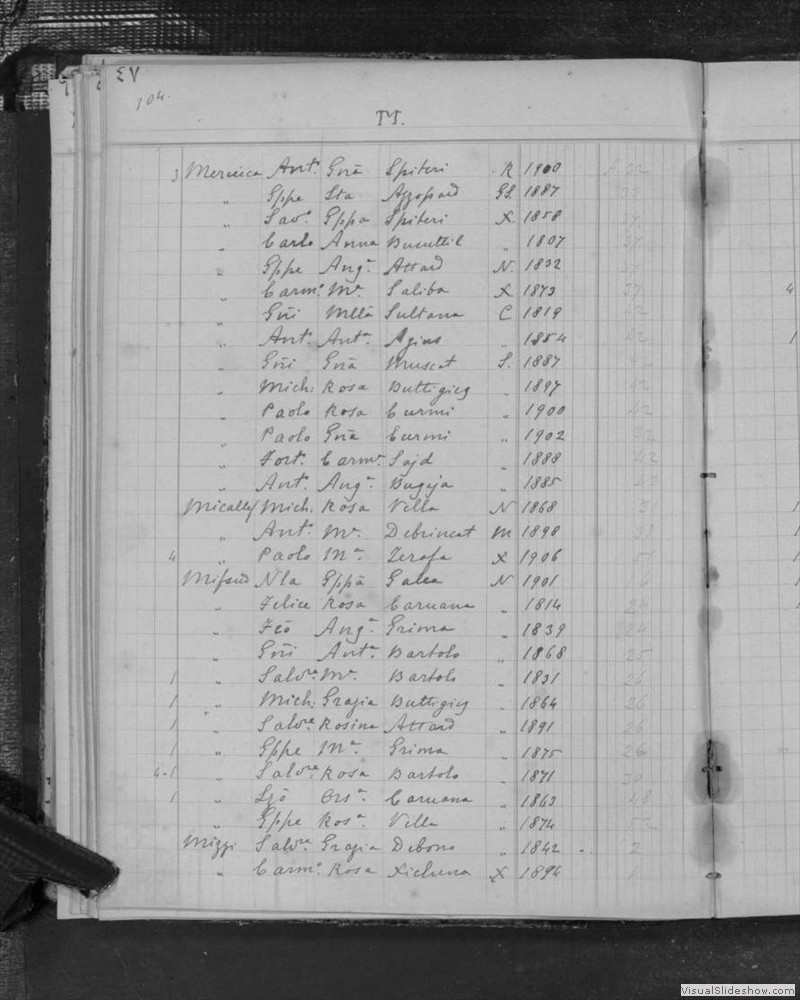 104.
M.
3 Mercieca Ant. Gnã Spiteri R 1900
" Gppe Sta Azzopard GS. 1887 32
" Sav. Gppa Spiteri X. 1858 37
" Carlo Anna Busuttil " 1807 37
" Gppe Angª Attard N. 1832 37
" Carmº Mª Saliba X 1873 37
" Gñi Mllã Sultana C 1819 42
" Ant. Antª Agius " 1854 42
" Gñi Gnã Muscat S. 1887 42
" Mich: Rosa Buttigieg " 1897 42
" Paolo Rosa Curmi " 1900 42
" Paolo Gnã Curmi " 1902 32
" Fort. Carmª Sajd " 1888 42
" Ant. Angª Bugeja " 1885 43
Micallef Mich. Rosa Vella N 1868 31
" Ant. Mª Debrincat M 1898 31
4 " Paolo Mª Zerafa X 1906 51
Mifsud Nla Gppã Galea N 1901 6
" Felice Rosa Caruana " 1814 24
" Fcõ Angª Grima " 1839 24
" Gñi Antª Bartolo " 1868 25
1 " Salvre Mª Bartolo " 1831 26
1 " Mich: Grazia Buttigieg " 1864 26
1 " Salvre Rosina Attard " 1891 26
1 " Gppe Mª Grima " 1875 26
4-1 " Salvre Rosa Bartolo " 1871 30
1 " Lzõ Orsª Caruana " 1863 48
" Gppe Rosª Vella " 1874 52
Mizzi Salvre Grazia Debono " 1842 2
" Carmº Rosa Xicluna X 1894
VisualSlideshow.com